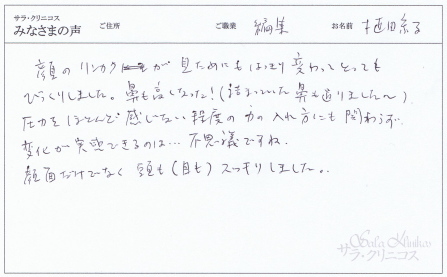 サラ・クリニコス
みなさまの声 ご住所 ご職業 編集 お名前 植田
顔のリンカクが見ためにもはっきり変わってとっても
びっくりしました。鼻も高くなった!(詰まっていた鼻も通りました〜)
圧力をほとんど感じない程度の力の入れ方にも関わらず、
変化が実感できるのは…不思議ですね。
顔面だけでなく頭も(目も)スッキリしました。
Sala Klinikos
サラ・クリニコス